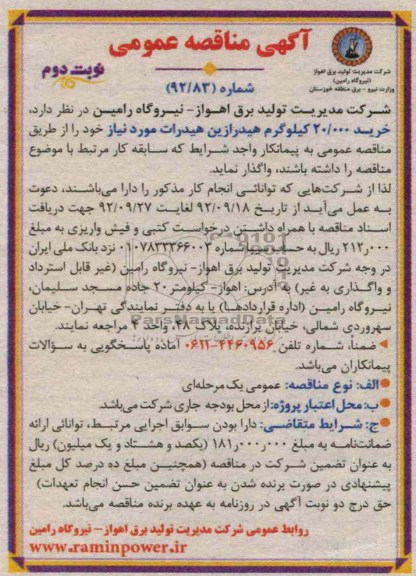 آگهی مناقصه عمومی
نوبت دوم
شرکت مدیریت تولید برق اهواز
(نیروگاه رامین)
وزارت نیرو - برق منطقه خوزستان
شماره (۹۲/۸۳)
شرکت مدیریت تولید برق اهواز- نیروگاه رامین در نظر دارد،
خرید ۲۰/۰۰۰ کیلوگرم هیدرازین هیدرات مورد نیاز خود را از طریق
مناقصه عمومی به پیمانکار واجد شرایط که سابقه کار مرتبط با موضوع
مناقصه را داشته باشند، واگذار نماید.
لذا از شرکت‌هایی که توانائی انجام کار مذکور را دارا می‌باشند، دعوت
به عمل می‌آید از تاریخ ۹۲/۰۹/۱۸ لغایت ۹۲/۰۹/۲۷ جهت دریافت
اسناد مناقصه با همراه داشتن درخواست کتبی و فیش واریزی به مبلغ
۲۱۲٫۰۰۰ ریال به حساب شماره ۰۱۰۷۸۳۳۳۶۶۰۰۳ نزد بانک ملی ایران
در وجه شرکت مدیریت تولید برق اهواز- نیروگاه رامین (غیر قابل استرداد
و واگذاری به غیر) به آدرس: اهواز- کیلومتر ۲۰ جاده مسجد سلیمان،
نیروگاه رامین (اداره قراردادها) یا به دفتر نمایندگی تهران- خیابان
سهروردی شمالی، خیابان برازنده، پلاک ۲۸، واحد ۴ مراجعه نمایند.
ضمناً، شماره تلفن ۴۴۶۰۹۵۶-۰۶۱۱ آماده پاسخگویی به سؤالات
پیمانکاران می‌باشد.
الف: نوع مناقصه: عمومی یک مرحله‌ای
ب: محل اعتبار پروژه: از محل بودجه جاری شرکت می‌باشد.
ج: شرایط متقاضی: دارا بودن سوابق اجرایی مرتبط، توانائی ارائه
ضمانت‌نامه به مبلغ ۱۸۱٫۰۰۰٫۰۰۰ (یکصد و هشتاد و یک میلیون) ریال
به عنوان تضمین شرکت در مناقصه (همچنین مبلغ ده درصد کل مبلغ
پیشنهادی در صورت برنده شدن به عنوان تضمین حسن انجام تعهدات)
حق درج دو نوبت آگهی در روزنامه به عهده برنده مناقصه می‌باشد.
روابط عمومی شرکت مدیریت تولید برق اهواز- نیروگاه رامین
www.raminpower.ir